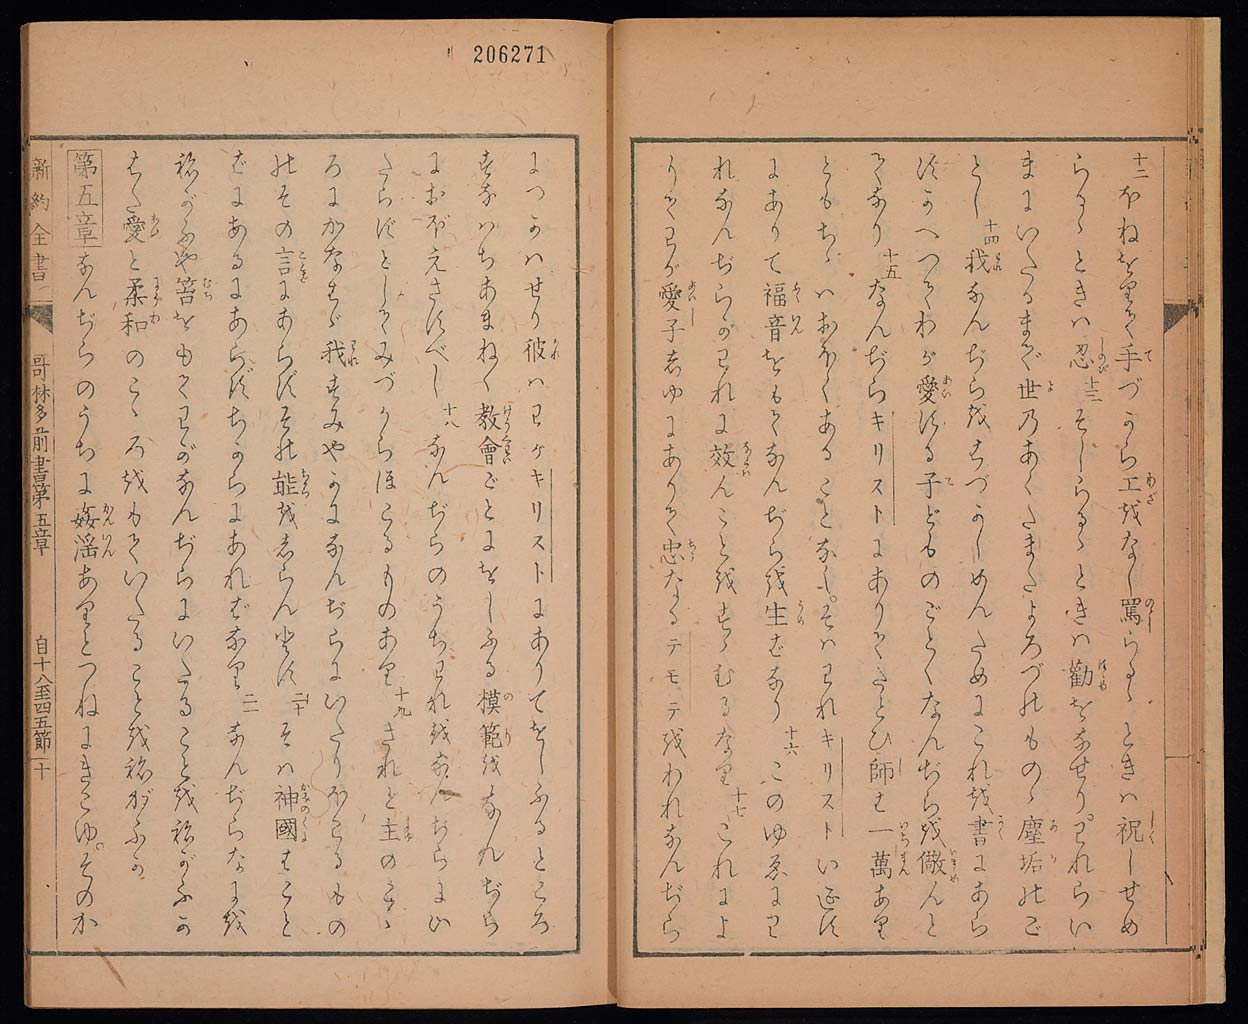 十二ほねをりて手づから工をなし罵らるゝときハ祝しせめ
らるゝときハ忍十三そしらるゝときハ勸をなせり。われらい
まにいたるまで世乃あくたまたよろづのものゝ塵垢のご
とし十四我なんぢらをはづかしめんためにこれを書にあら
ずかへつてわが愛する子どものごとくなんぢらを儆んと
てなり十五なんぢらキリストにありてたとひ師は一萬あり
ともちゝハおほくあることなし。そハわれキリストい
にありて福音をもてなんぢらを生ばなり十六このゆゑにわ
れなんぢらがわれに效んことをすゝむるなり十七これによ
りてわが愛子しゆにありて忠なるテモテをわれなんぢら
206271
につかハせり彼ハわがキリストにありてをしふるところ
すなハちあまねく教會ごとにをしふる模範をなんぢら
におぼえさすべし十八なんぢらのうちわれをなんぢらにい
たらずとしてみづからほこるものあり十九されど主のこゝ
ろにかなはゞ我すみやかになんぢらにいたりほこるもの
のその言にあらずその能をしらんとす二十そハ神國はこと
ばにあるにあらずちからにあればなり二一なんぢらなにを
ねがふや笞をもてわがなんぢらにいたることをねがふか
また愛と柔和のこゝろをもていたることをねがふか
第五章なんぢらのうちに姦淫ありとつねにきこゆ。そのか
新約全書 哥林多前書第五章 自十八至四五節 十